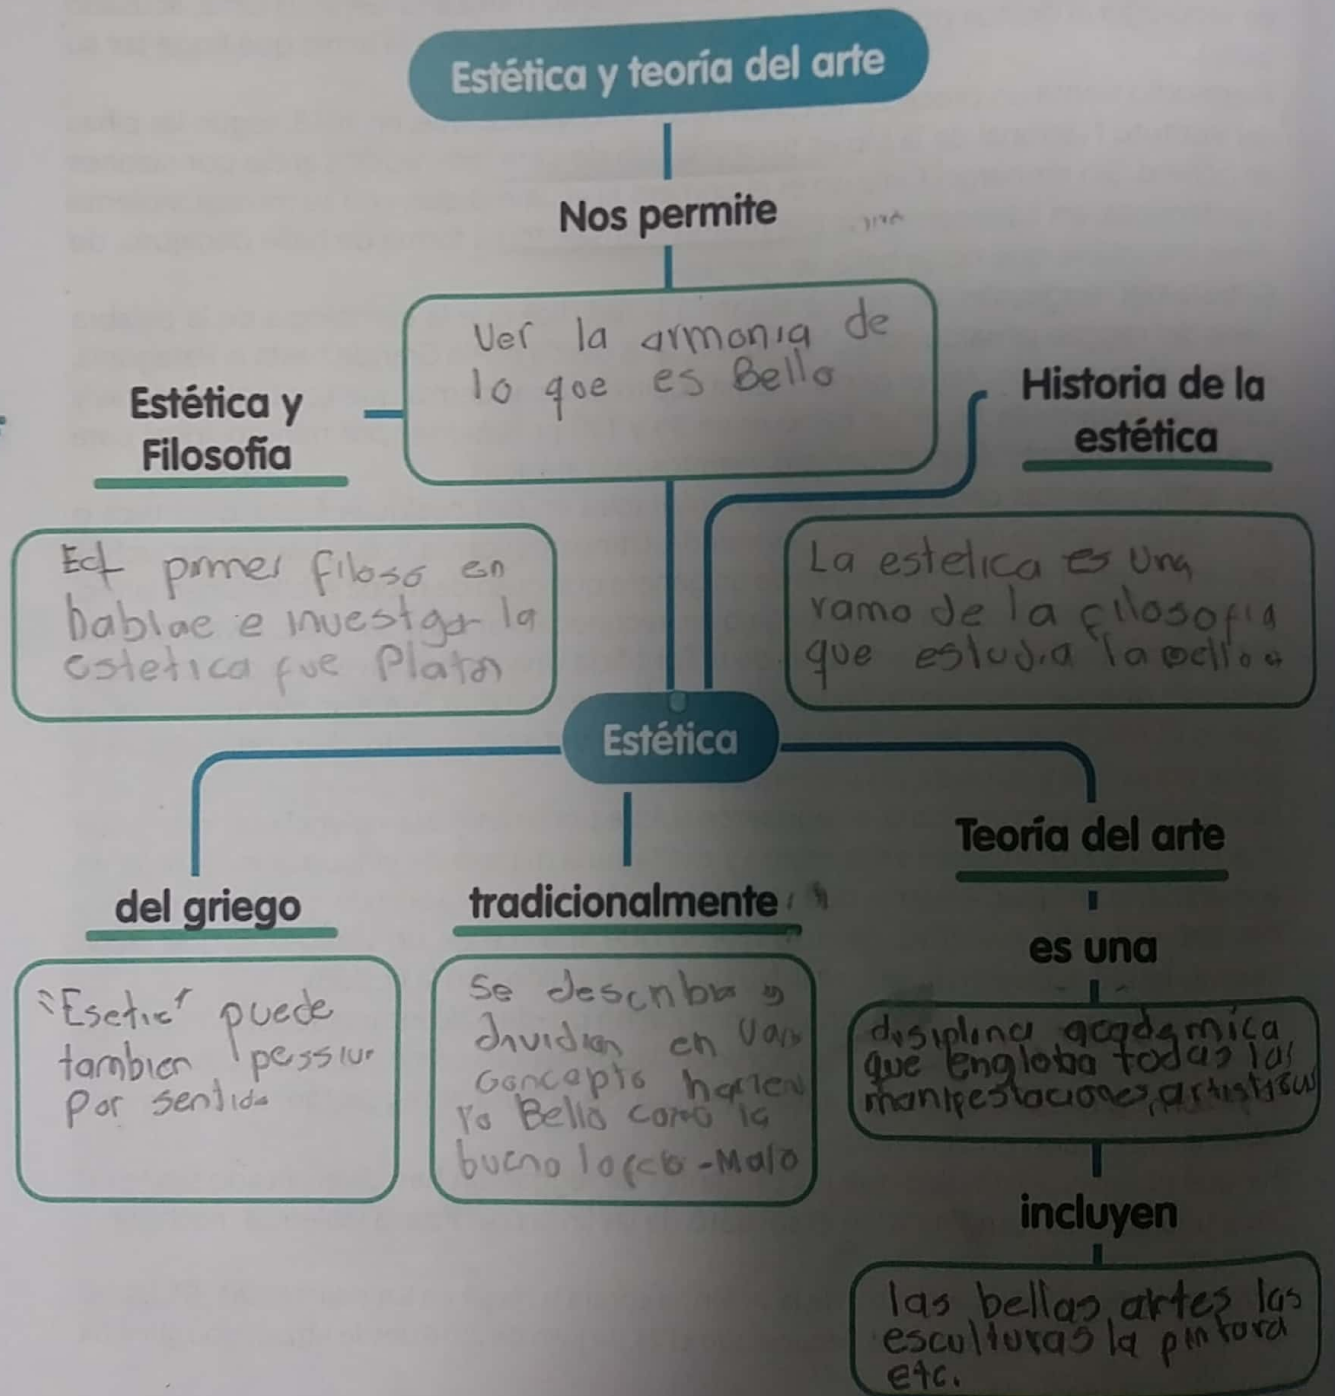 Estética y teoría del arte
Nos permite
Ver la armonia de
lo que es Bello
Estética y
Filosofía
Historia de la
estética
primer filoso en
hablae e investgar la
estetica fue Platon
La estetica es una
ramo de la filosofia
que estudia la
Estética
del griego
"Esetic" puede
tambien
por sentido
tradicionalmente
Se
dividian en
concepto
Bello como la
bueno lo feo - Malo
Teoría del arte
es una
disiplina academica
que engloba todas las
manifestaciones, artisticas
incluyen
las bellas artes las
esculturas la pintura
etc.